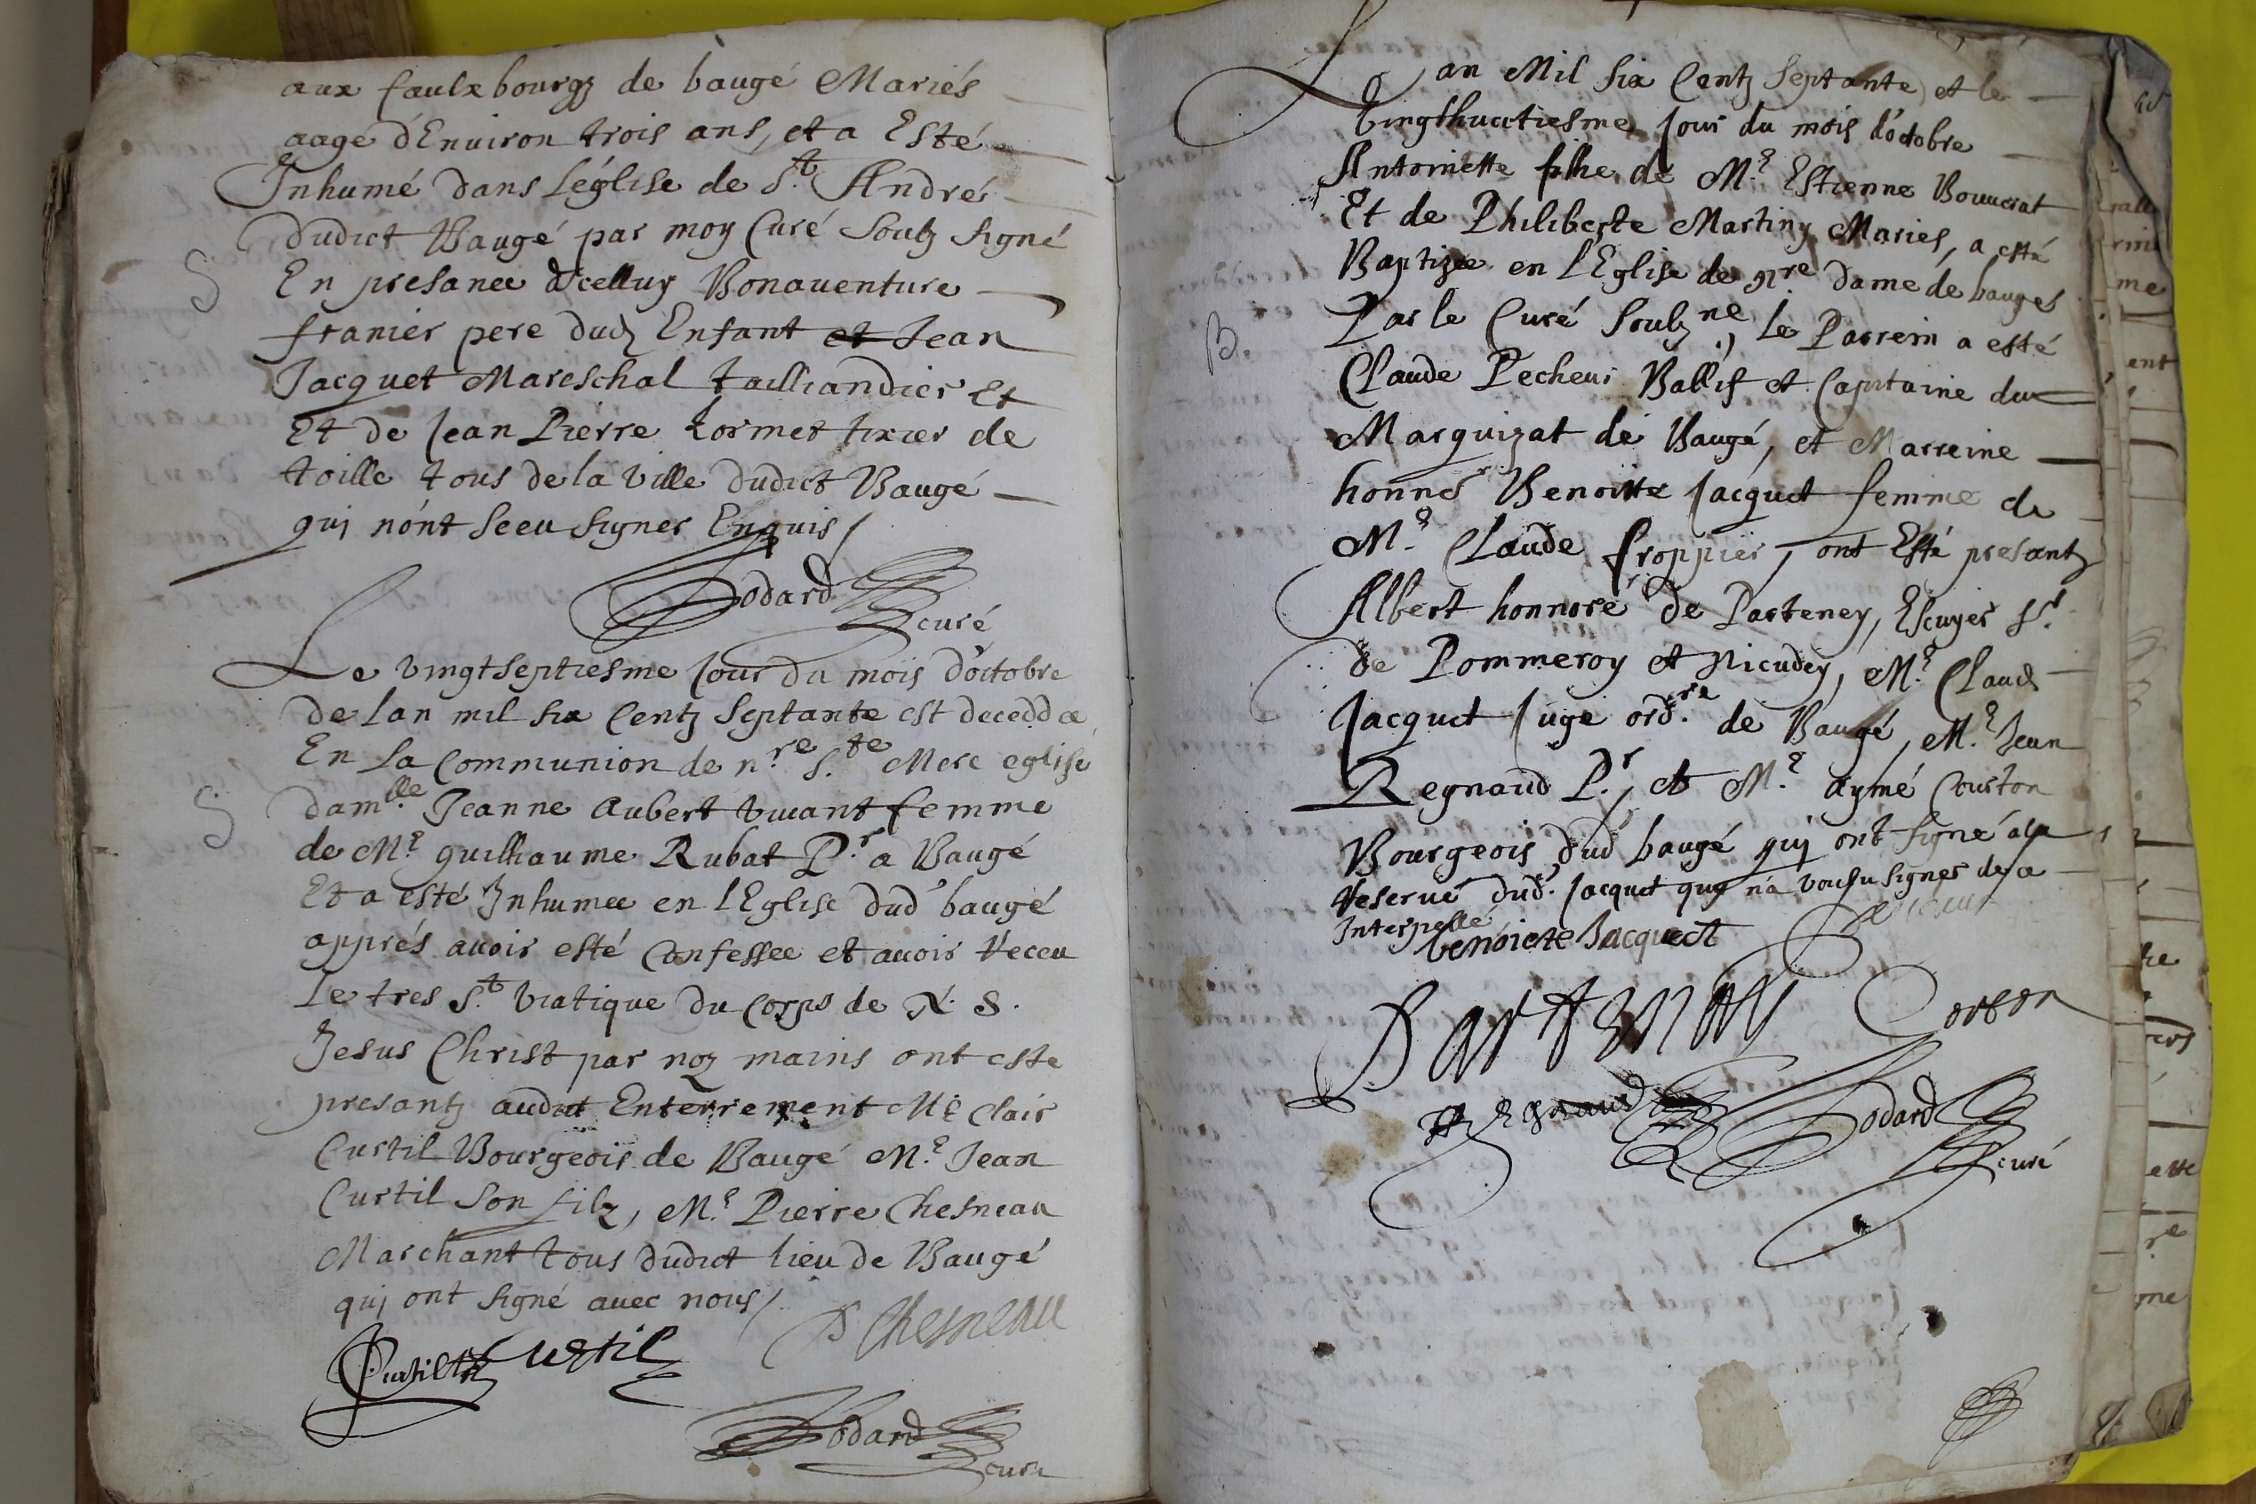 aux faulxbourgz de baugé Mariés
aagé d'Enuiron trois ans, et a Esté
Inhumé dans L'église de S.t André
dudict Baugé par moy Curé Soubz signé
S
En presance d'icelluy Bonauenture
franier pere dud Enfant et Jean
Jacquet Mareschal tailliandier Et
Et de Jean Pierre Lormet tixier de
toille tous de la Ville dudict Baugé
qui n'ont sceu signer Enquis /
Godard curé
Le vingtseptiesme Jour du mois d'octobre
de Lan mil six Centz Septante est deceddée
En La Communion de n.re S.te Mere eglise
S
dam.lle Jeanne Aubert viuant femme
de M.e guilliaume Rubat P.r a Baugé
Et a esté Inhumee en l'Eglise dud baugé
apprés auoir esté Confessee et auoir Receu
Le tres S.t viatique du Corps de N. S.
Jesus Christ par noz mains ont este
presantz audict Enterrement M.e Clair
Curtil Bourgeois de Baugé M.e Jean
Curtil son filz, M.e Pierre Chesneau
Marchant tous dudict lieu de Baugé
qui ont signé auec nous /
P Chesneau
Curtil Curtil
Godard curé
Lan Mil six Centz Septante et le
Vingthuictiesme Jour du mois d'octobre
Antoinette filhe de M.e Estienne
Et de Philiberte Martiny Mariés, a esté
Baptizée en l'Eglise de n.re dame de baugé
B.
Par le Curé soubz.ne, Le Parrein a esté
Claude Pecheur Ballif et Capitaine du
Marquizat de Baugé, et Marreine
honne Benoitte Jacquet femme de
M.e Claude froppier, ont Esté presantz
Albert honnoré de Parteney, Escuyer S.r
de Pommeroy et M.e Claude
Jacquet Juge ord.re de Baugé, M.e Jean
Regnaud P.r, et M.e aymé Courton
Bourgeois dud baugé qui ont signé a la
reserue dud. Jacquet quy n'a voulsu signer de ce
Interpellé
benoicte Jacquect
Partenay
Corton
Regnaud
Godard curé